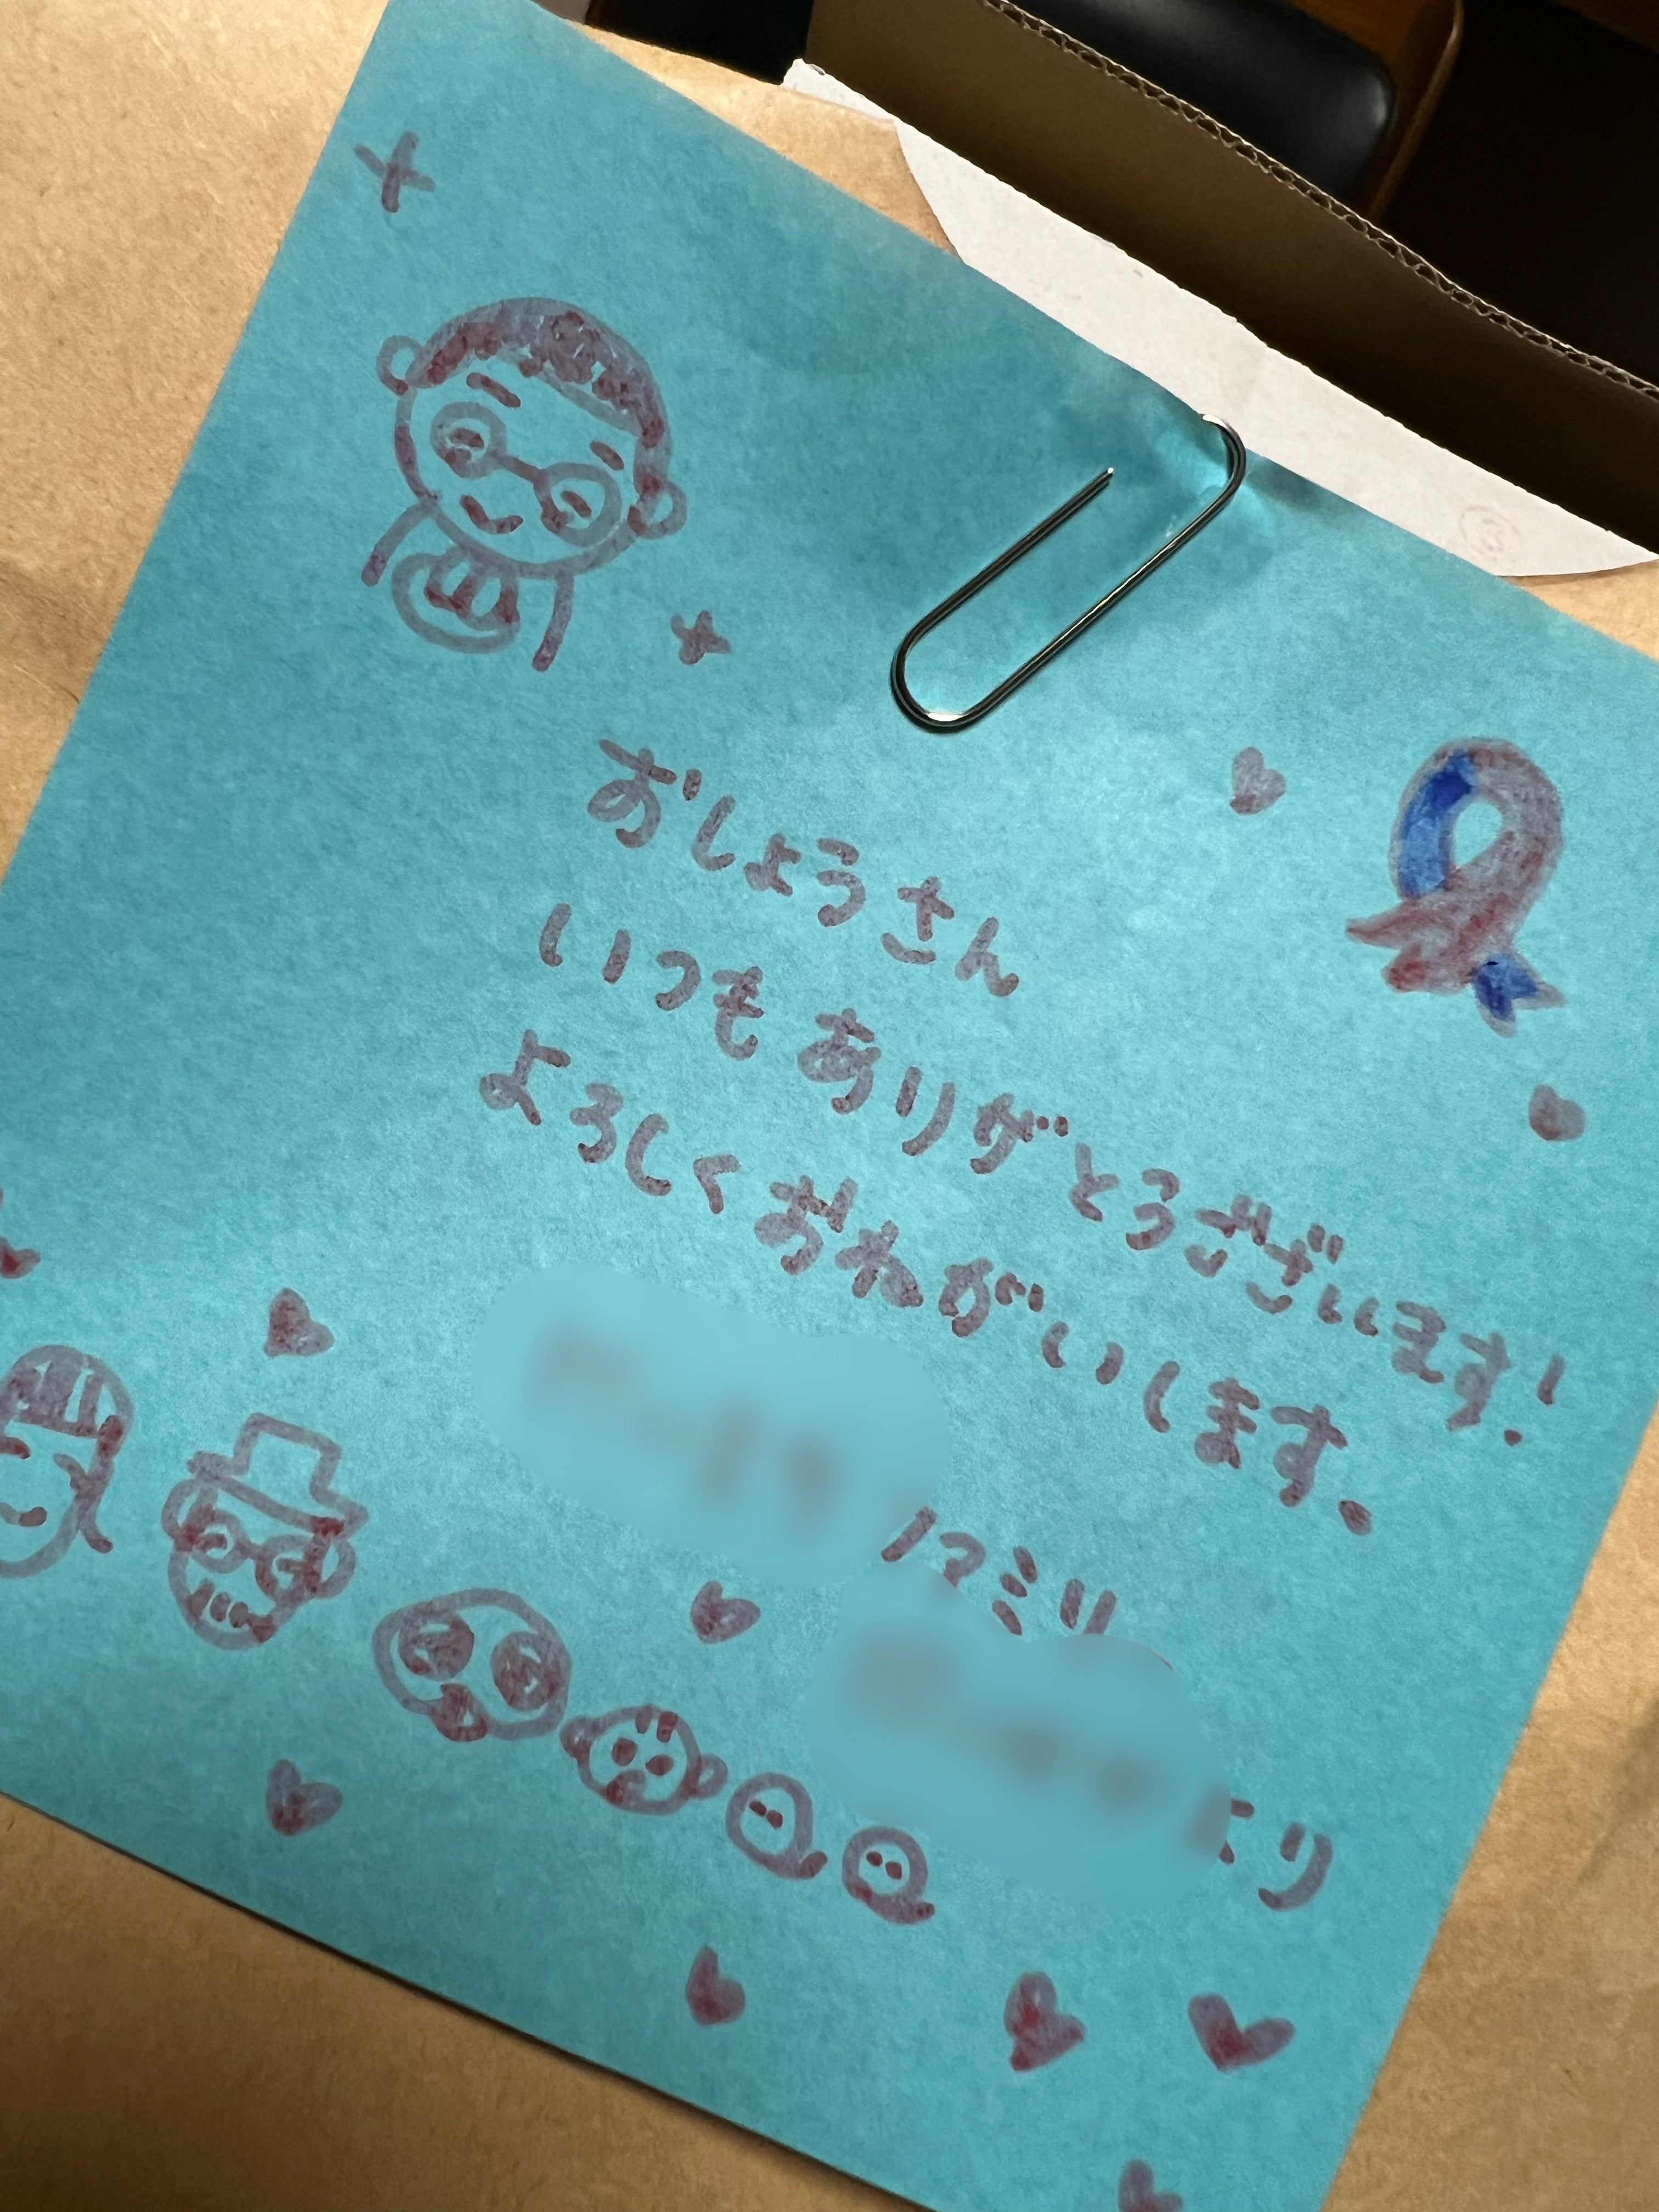 おしょうさん
いつもありがとうございます!
よろしくおねがいします。
ァミリ
より